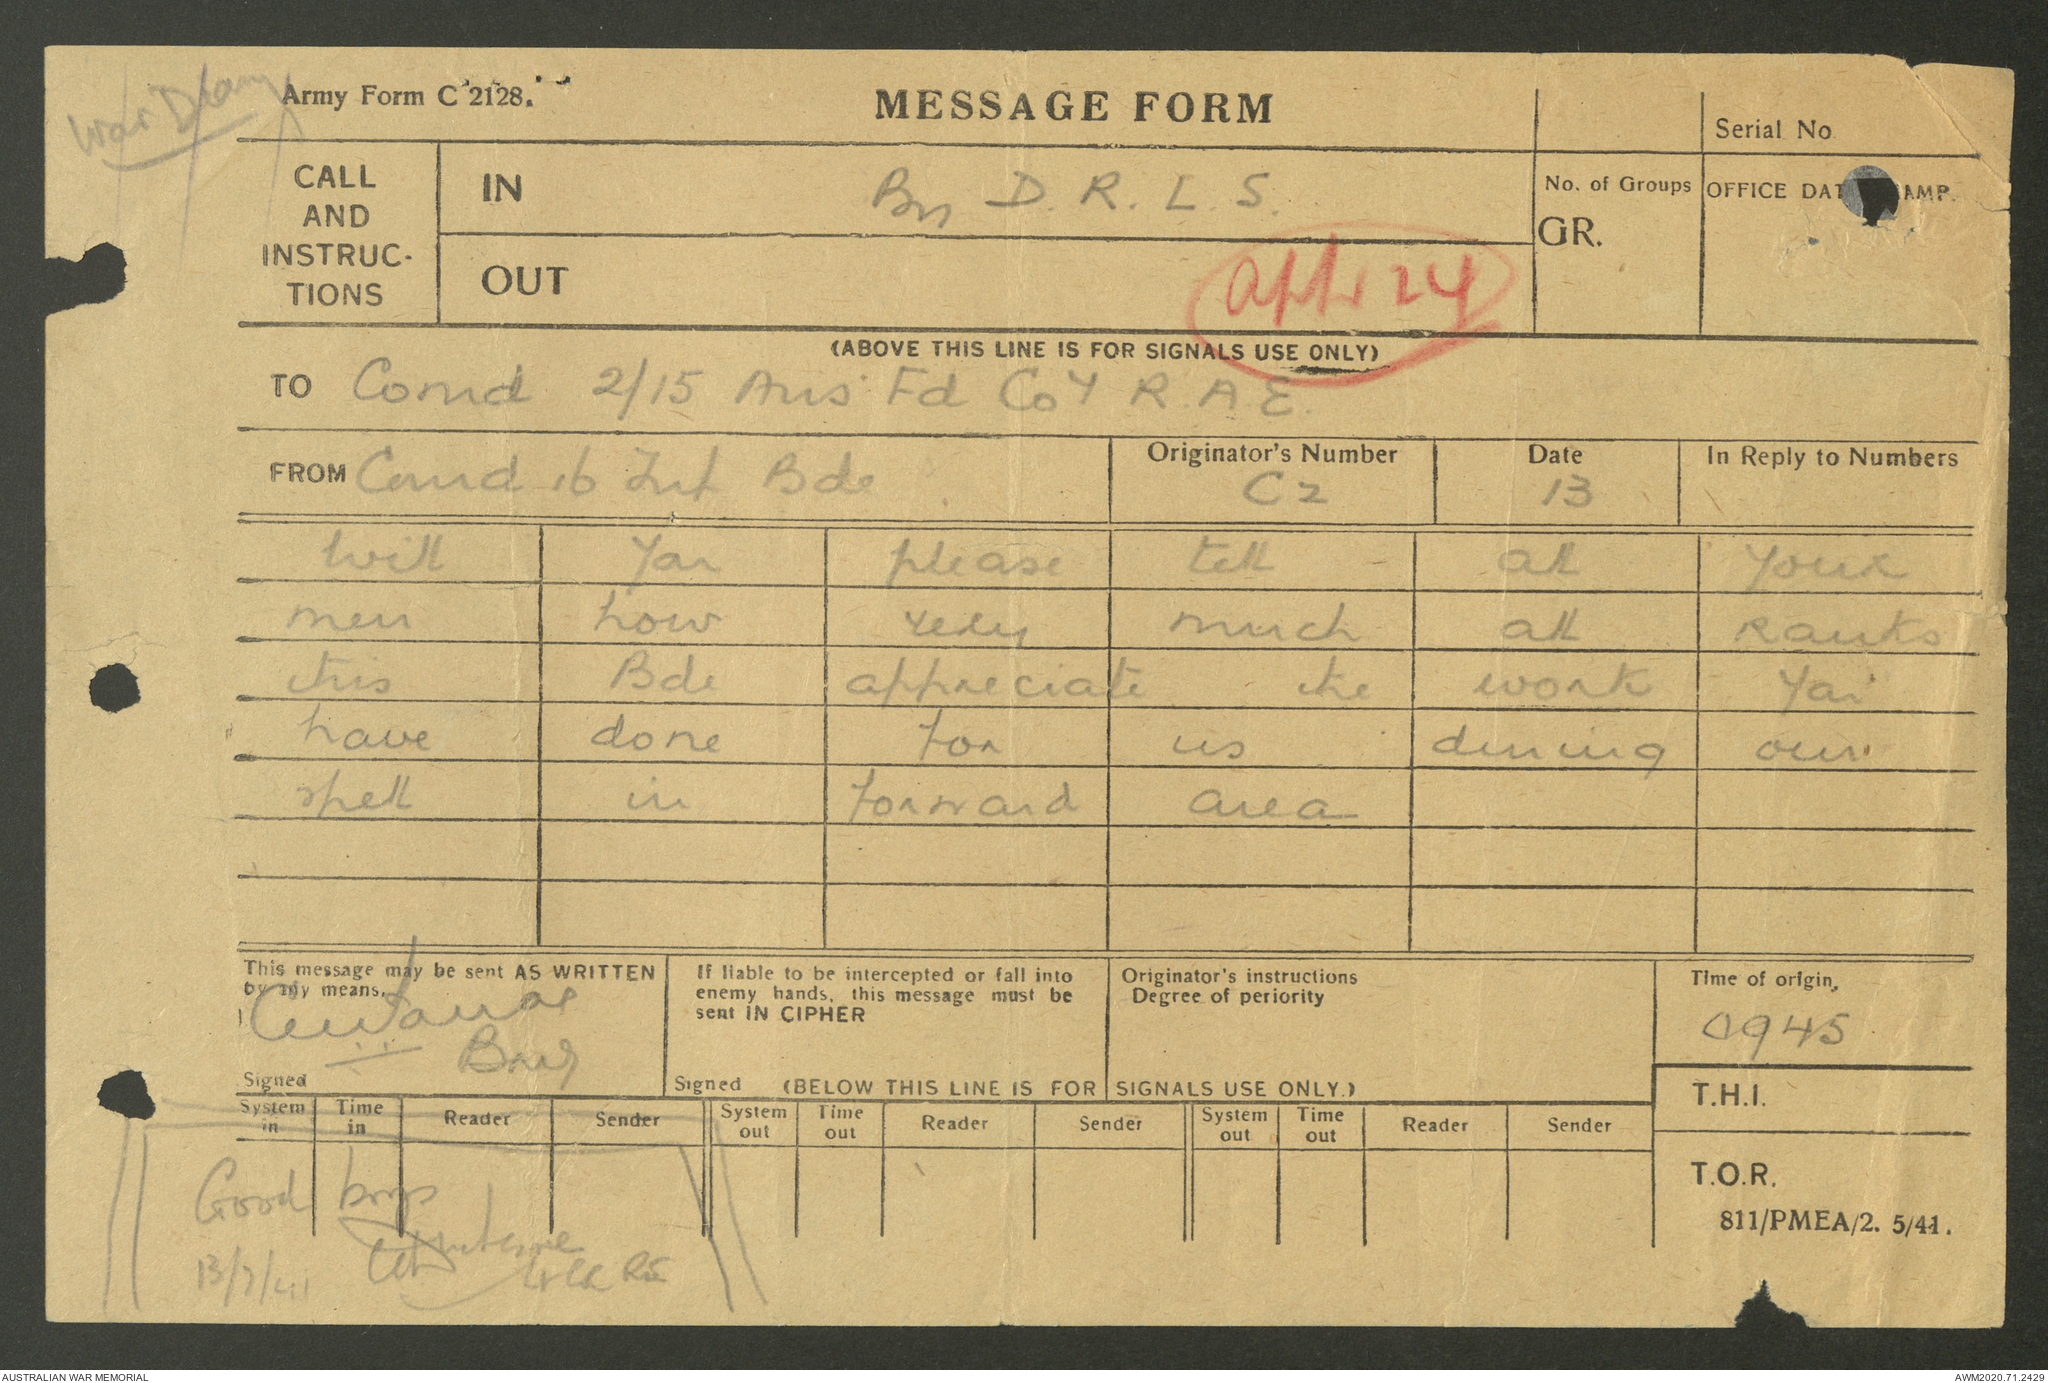 War Diary
Army Form C 2128.
MESSAGE FORM
Serial No
CALL AND INSTRUC- TIONS
IN By D. R. L. S.
No. of Groups GR.
OFFICE DAT AMP.
OUT
App 24
(ABOVE THIS LINE IS FOR SIGNALS USE ONLY)
TO Comd 2/15 Aus Fd Coy R.A.E.
FROM Comd 16 Inf Bde
Originator's Number C2
Date 13
In Reply to Numbers
Will you please tell all your
men how very much all ranks
this Bde appreciate the work you
have done for us during our
spell in forward area
This message may be sent AS WRITTEN
by any means.
Brig
Signed
If liable to be intercepted or fall into
enemy hands, this message must be
sent IN CIPHER
Signed
Originator's instructions
Degree of periority
Time of origin,
0945
(BELOW THIS LINE IS FOR SIGNALS USE ONLY.)
T.H.I.
System in Time in Reader Sender System out Time out Reader Sender System out Time out Reader Sender
T.O.R.
811/PMEA/2. 5/41.
Good boys
13/7/41
AUSTRALIAN WAR MEMORIAL
AWM2020.71.2429